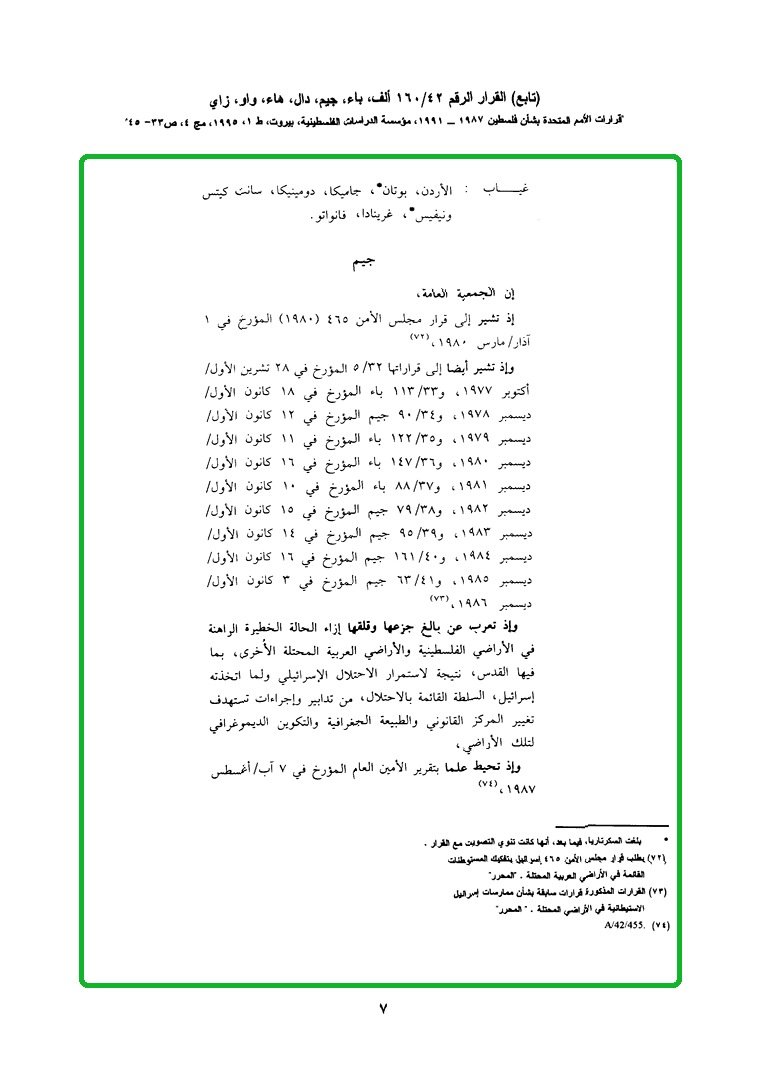 (تابع) القرار الرقم ١٦٠/٤٢ ألف، باء، جيم، دال، هاء، واو، زاي
"قرارات الأمم المتحدة بشأن فلسطين ١٩٨٧ – ١٩٩١، مؤسسة الدراسات الفلسطينية، بيروت، ط ١، ١٩٩٥، مج ٤، ص٣٣- ٤٥"
غيـــاب : الأردن، بوتان*، جاميكا، دومينيكا، سانت كيتس
ونيفيس*، غرينادا، فانواتو.
جيم
إن الجمعية العامة،
إذ تشير إلى قرار مجلس الأمن ٤٦٥ (١٩٨٠) المؤرخ في ١
آذار/مارس ١٩٨٠،(٧٢)
وإذ تشير أيضا إلى قراراتها ٥/٣٢ المؤرخ في ٢٨ تشرين الأول/
أكتوبر ١٩٧٧، و١١٣/٣٣ باء المؤرخ في ١٨ كانون الأول/
ديسمبر ١٩٧٨، و٩٠/٣٤ جيم المؤرخ في ١٢ كانون الأول/
ديسمبر ١٩٧٩، و١٢٢/٣٥ باء المؤرخ في ١١ كانون الأول/
ديسمبر ١٩٨٠، و١٤٧/٣٦ باء المؤرخ في ١٦ كانون الأول/
ديسمبر ١٩٨١، و٨٨/٣٧ باء المؤرخ في ١٠ كانون الأول/
ديسمبر ١٩٨٢، و٧٩/٣٨ جيم المؤرخ في ١٥ كانون الأول/
ديسمبر ١٩٨٣، و٩٥/٣٩ جيم المؤرخ في ١٤ كانون الأول/
ديسمبر ١٩٨٤، و١٦١/٤٠ جيم المؤرخ في ١٦ كانون الأول/
ديسمبر ١٩٨٥، و٦٣/٤١ جيم المؤرخ في ٣ كانون الأول/
ديسمبر ١٩٨٦،(٧٣)
وإذ تعرب عن بالغ جزعها وقلقها إزاء الحالة الخطيرة الراهنة
في الأراضي الفلسطينية والأراضي العربية المحتلة الأخرى، بما
فيها القدس، نتيجة لاستمرار الاحتلال الإسرائيلي ولما اتخذته
إسرائيل، السلطة القائمة بالاحتلال، من تدابير وإجراءات تستهدف
تغيير المركز القانوني والطبيعة الجغرافية والتكوين الديموغرافي
لتلك الأراضي،
وإذ تحيط علما بتقرير الأمين العام المؤرخ في ٧ آب/أغسطس
١٩٨٧،(٧٤)
* بلغت السكرتاريا، فيما بعد، أنها كانت تنوي التصويت مع القرار .
(٧٢) يطلب قرار مجلس الأمن ٤٦٥ إسرائيل بتفكيك المستوطنات
القائمة في الأراضي العربية المحتلة . "المحرر"
(٧٣) القرارات المذكورة قرارات سابقة بشأن ممارسات إسرائيل
الاستيطانية في الأراضي المحتلة . " المحرر"
(٧٤) A/42/455.
٧